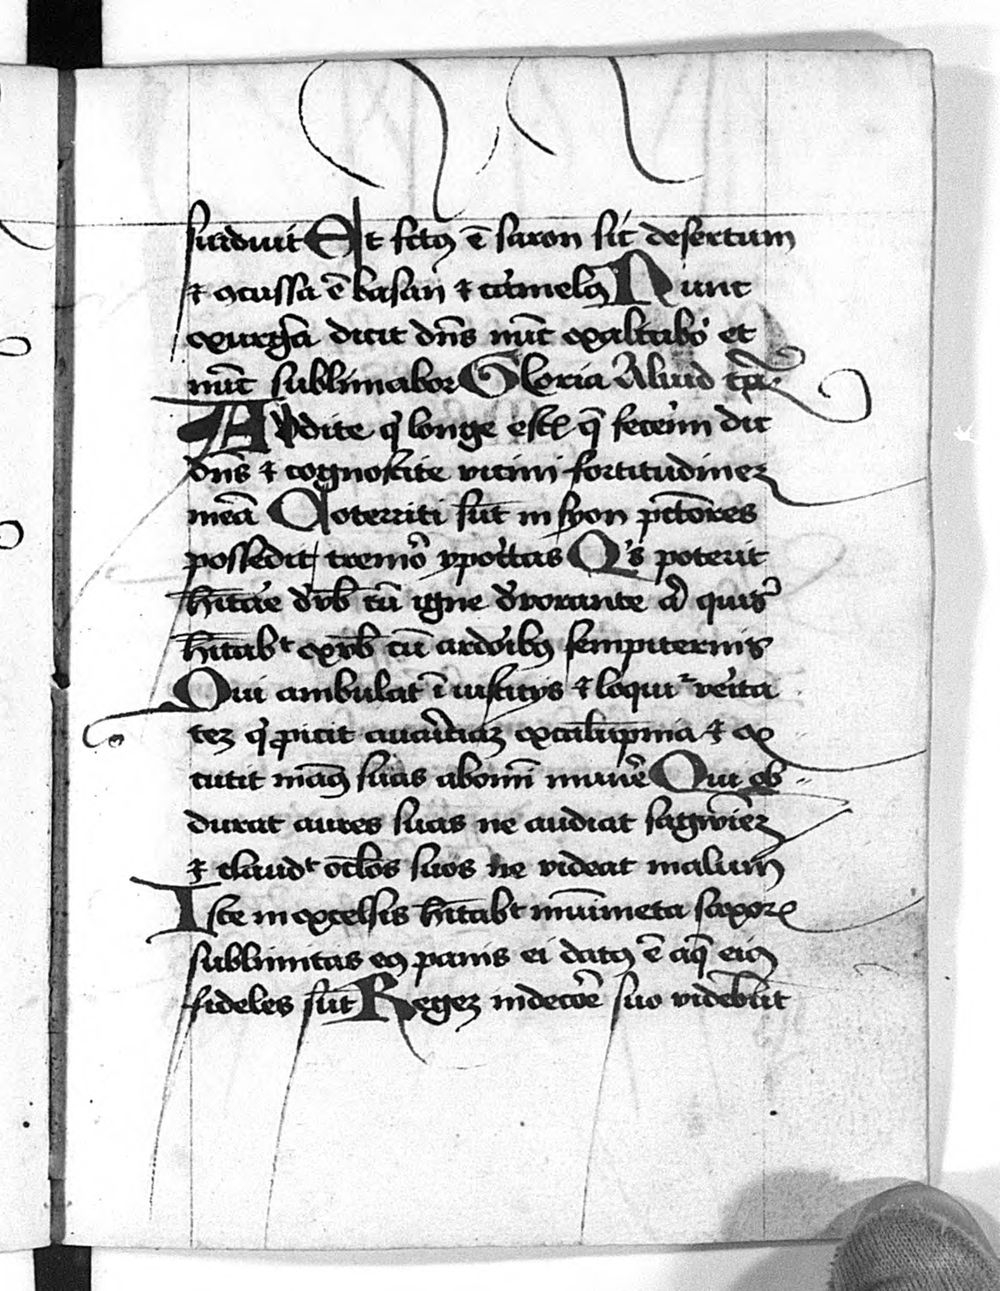 surduit Et fctꝯ ē saron sic̄ desertum
⁊ ꝯcussa ē basan ⁊ carmelꝯ Nunc
exurgā dicit dn̄s nūc exaltabor et
nūc sublimabor Gloria Aliud
Avdite q̇ longe estꝭ q̄ fecerim dic̄
dn̄s ⁊ cognoscite vicini fortitudinez
meā Qoterriti sūt in syon pctōres
possedit tremor ypoc̓tas Qͥs poterit
hītare d̓ vob̄ cū igne d̓vorante aū quis
hītabᵗ ex vob̄ cū ardoribꝯ sempiternis
Qui ambulat ī iusticijs ⁊ loquiᷣ verita
tez q̇ ꝓicit avariciaz ex calūpnia ⁊ ex
cutit manꝯ suas ab om̄i munēe Qui ob
durat aures suas ne audiat sagwinez
⁊ claudᵗ oc̄los suos ne videat malum
Iste in excelsis hītabᵗ munimēta saxorꝭ
sublimitas eꝯ panis ei datꝯ ē aq̄ eiꝯ
fideles sūt Regez in decōe suo videbūt